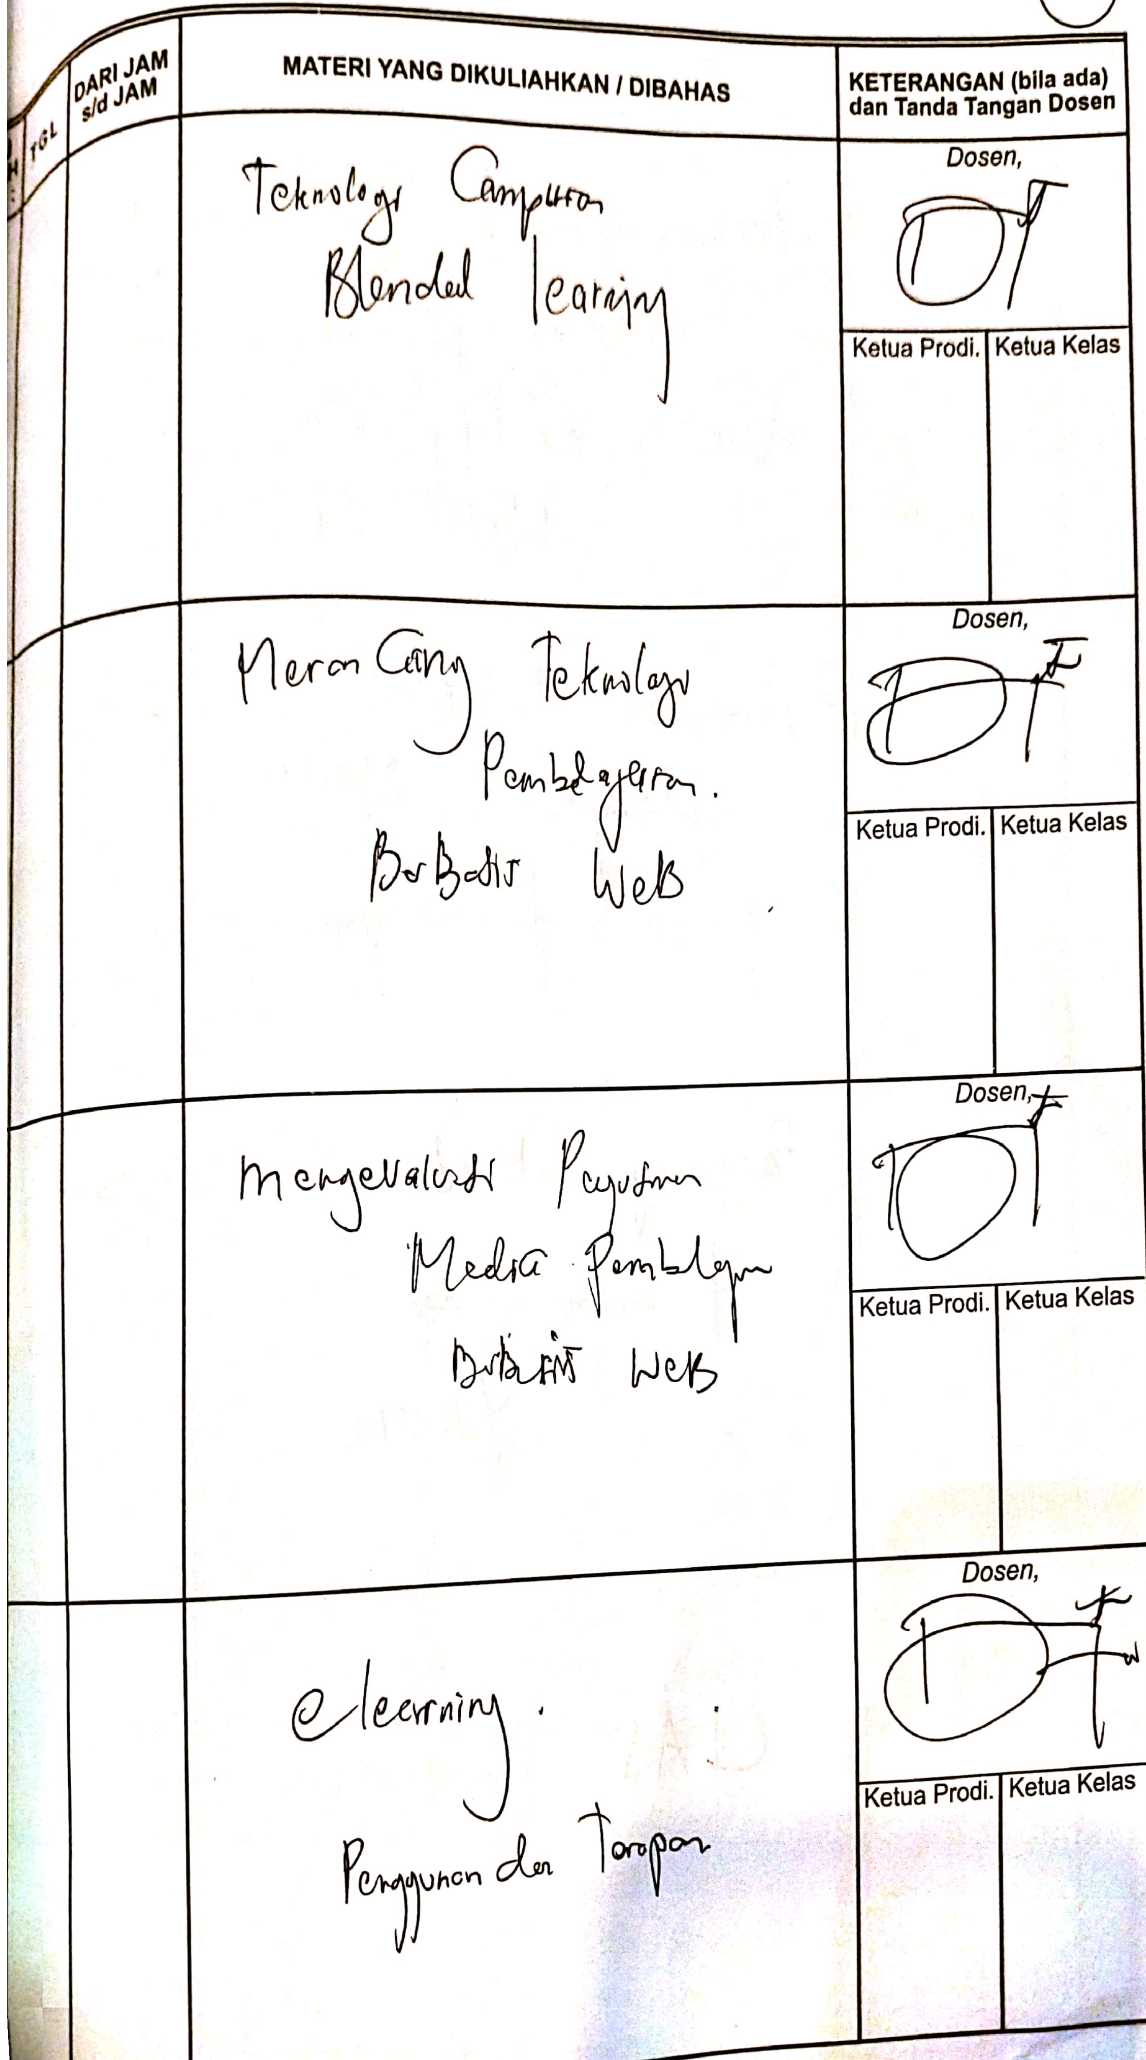 TGL
DARI JAM
s/d JAM
MATERI YANG DIKULIAHKAN / DIBAHAS
KETERANGAN (bila ada)
dan Tanda Tangan Dosen
Teknologi Campuran
Blended learning
Dosen,
Ketua Prodi. Ketua Kelas
Merancang Teknologi
Pembelajaran.
BerBasis WeB
Dosen,
Ketua Prodi. Ketua Kelas
Mengevaluasi
Media
WeB
Dosen,
Ketua Prodi. Ketua Kelas
elearning.
Penggunan dan Tarapan
Dosen,
Ketua Prodi. Ketua Kelas